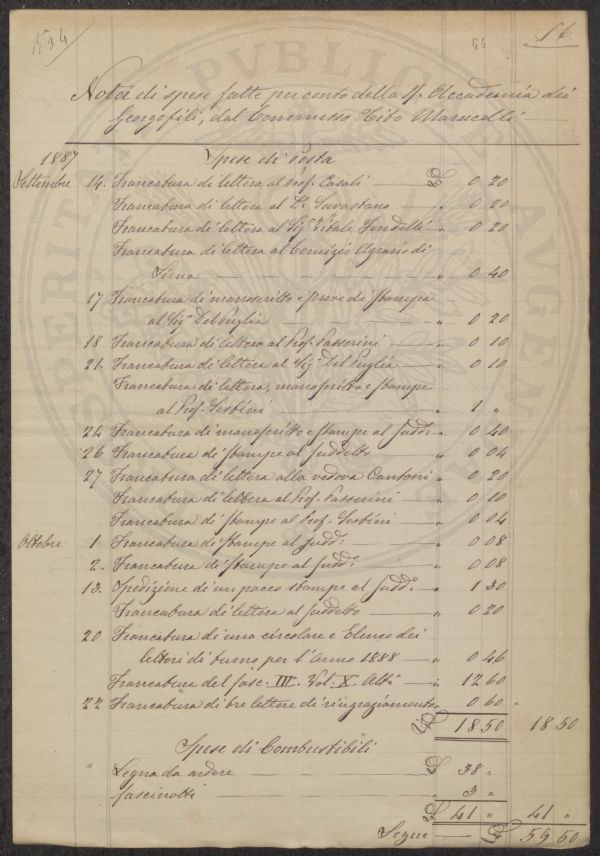 1534
56
66
Nota di spese fatte per conto della R. Accademia dei
Georgofili, dal Commesso Tito Marucelli
1887 Spese di Posta
Settembre 14. Francatura di lettera al Prof. Casali £ 0 20
Francatura di lettera al Dr Savastano " 0 20
Francatura di lettera al Sigr Vitale Fondelli " 0 20
Francatura di lettera al Comizio Agrario di
Siena " 0 40
17 Francatura di manoscritto e prove di stampa
al Sigr Del Puglia " 0 20
18 Francatura di lettera al Prof. Passerini " 0 10
21. Francatura di lettera al Sigr Del Puglia " 0 10
Francatura di lettera, manoscritto e stampe
al Prof. Sestini " 1 "
24 Francatura di manoscritto e stampe al Sudd: " 0 40
26 Francatura di stampe al Suddetto " 0 04
27 Francatura di lettera alla vedova Cantoni " 0 20
Francatura di lettera al Prof. Passerini " 0 10
Francatura di stampe al Prof. Sestini " 0 04
Ottobre 1. Francatura di stampe al Sudd: " 0 08
2. Francatura di stampe al Sudd: " 0 08
13. Spedizione di un pacco stampe al Sudd. " 1 30
Francatura di lettera al Suddetto " 0 20
20 Francatura di una circolare e Elenco dei
lettori di turno per l'Anno 1888 " 0 46
Francatura del fasc. III. Vol. X. Atti " 12 60
22 Francatura di tre lettere di ringraziamento " 0 60
£ 18.50 18 50
Spese di Combustibili
Legna da ardere £ 38 "
fascinotti " 3 "
£ 41 " 41 "
Segue £ 59 50